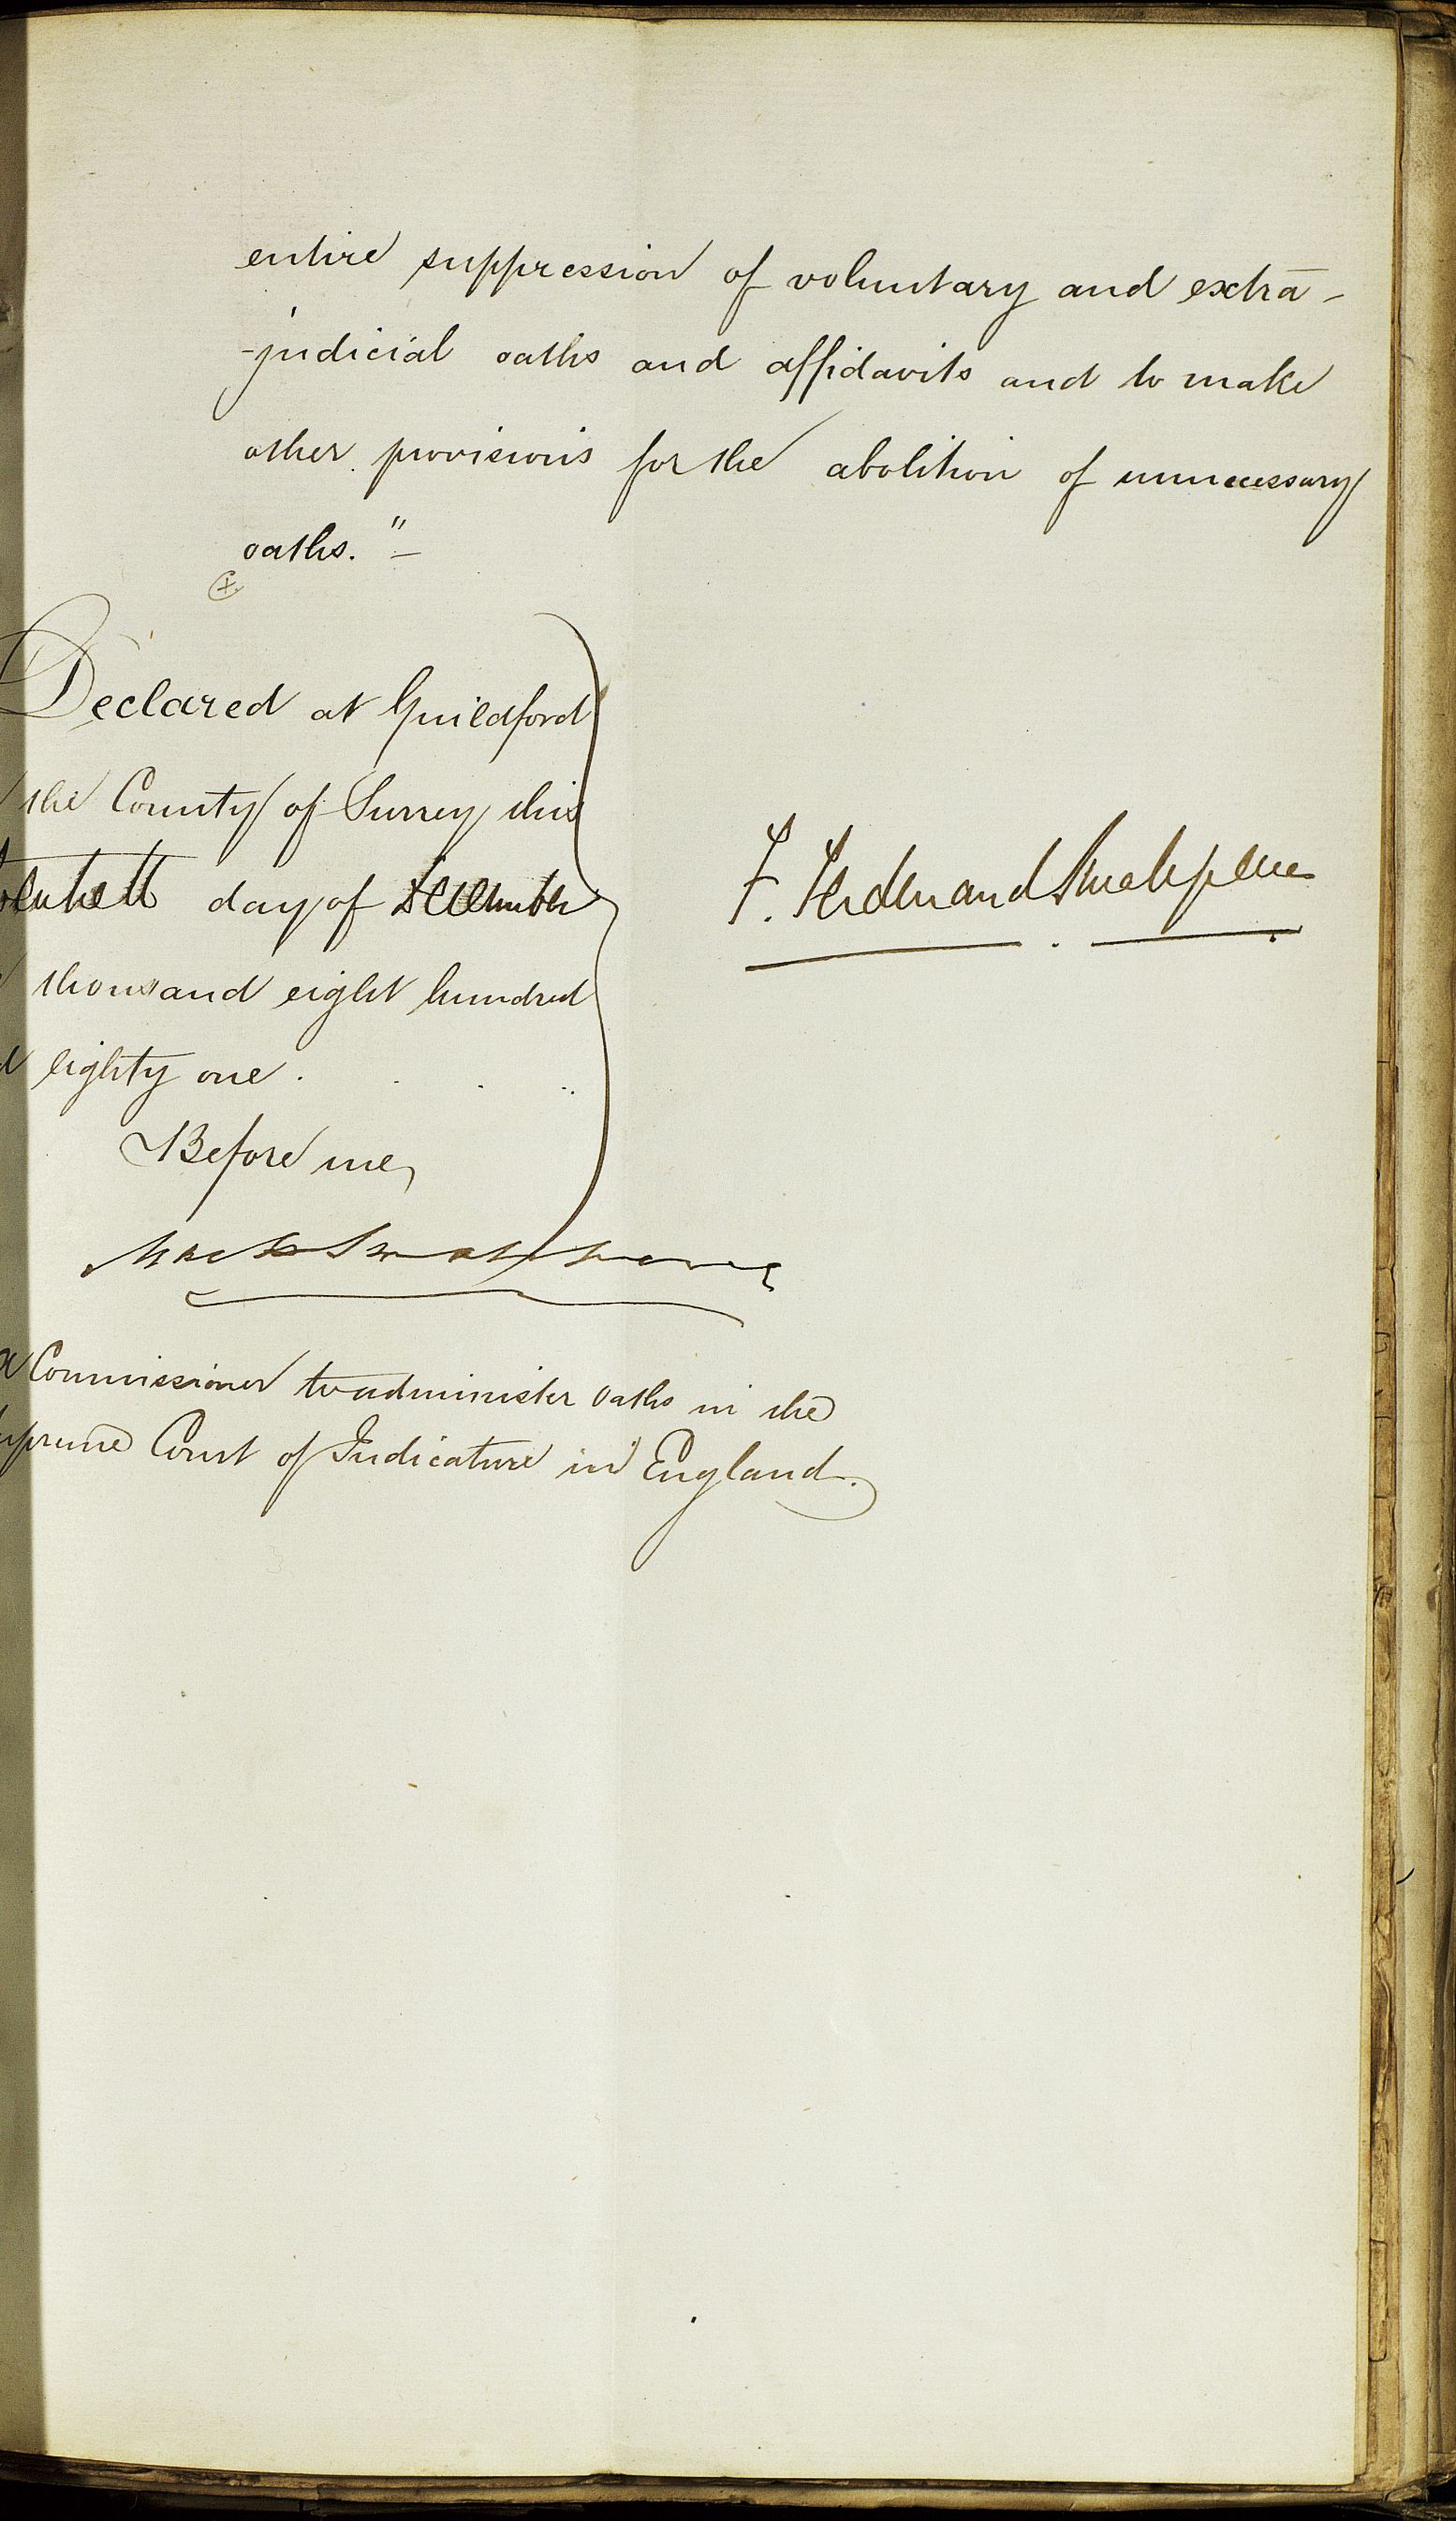 entire suppression of voluntary and extra-
-judicial oaths and affidavits and to make
other provisions for the abolition of unnecessary
oaths."—
Declared at Guildford
the County of Surrey this
day of December
thousand eight hundred
eighty one.
F. Ferdinand
Before me,
a Commissioner to administer oaths in the
upreme Court of Judicature in England.